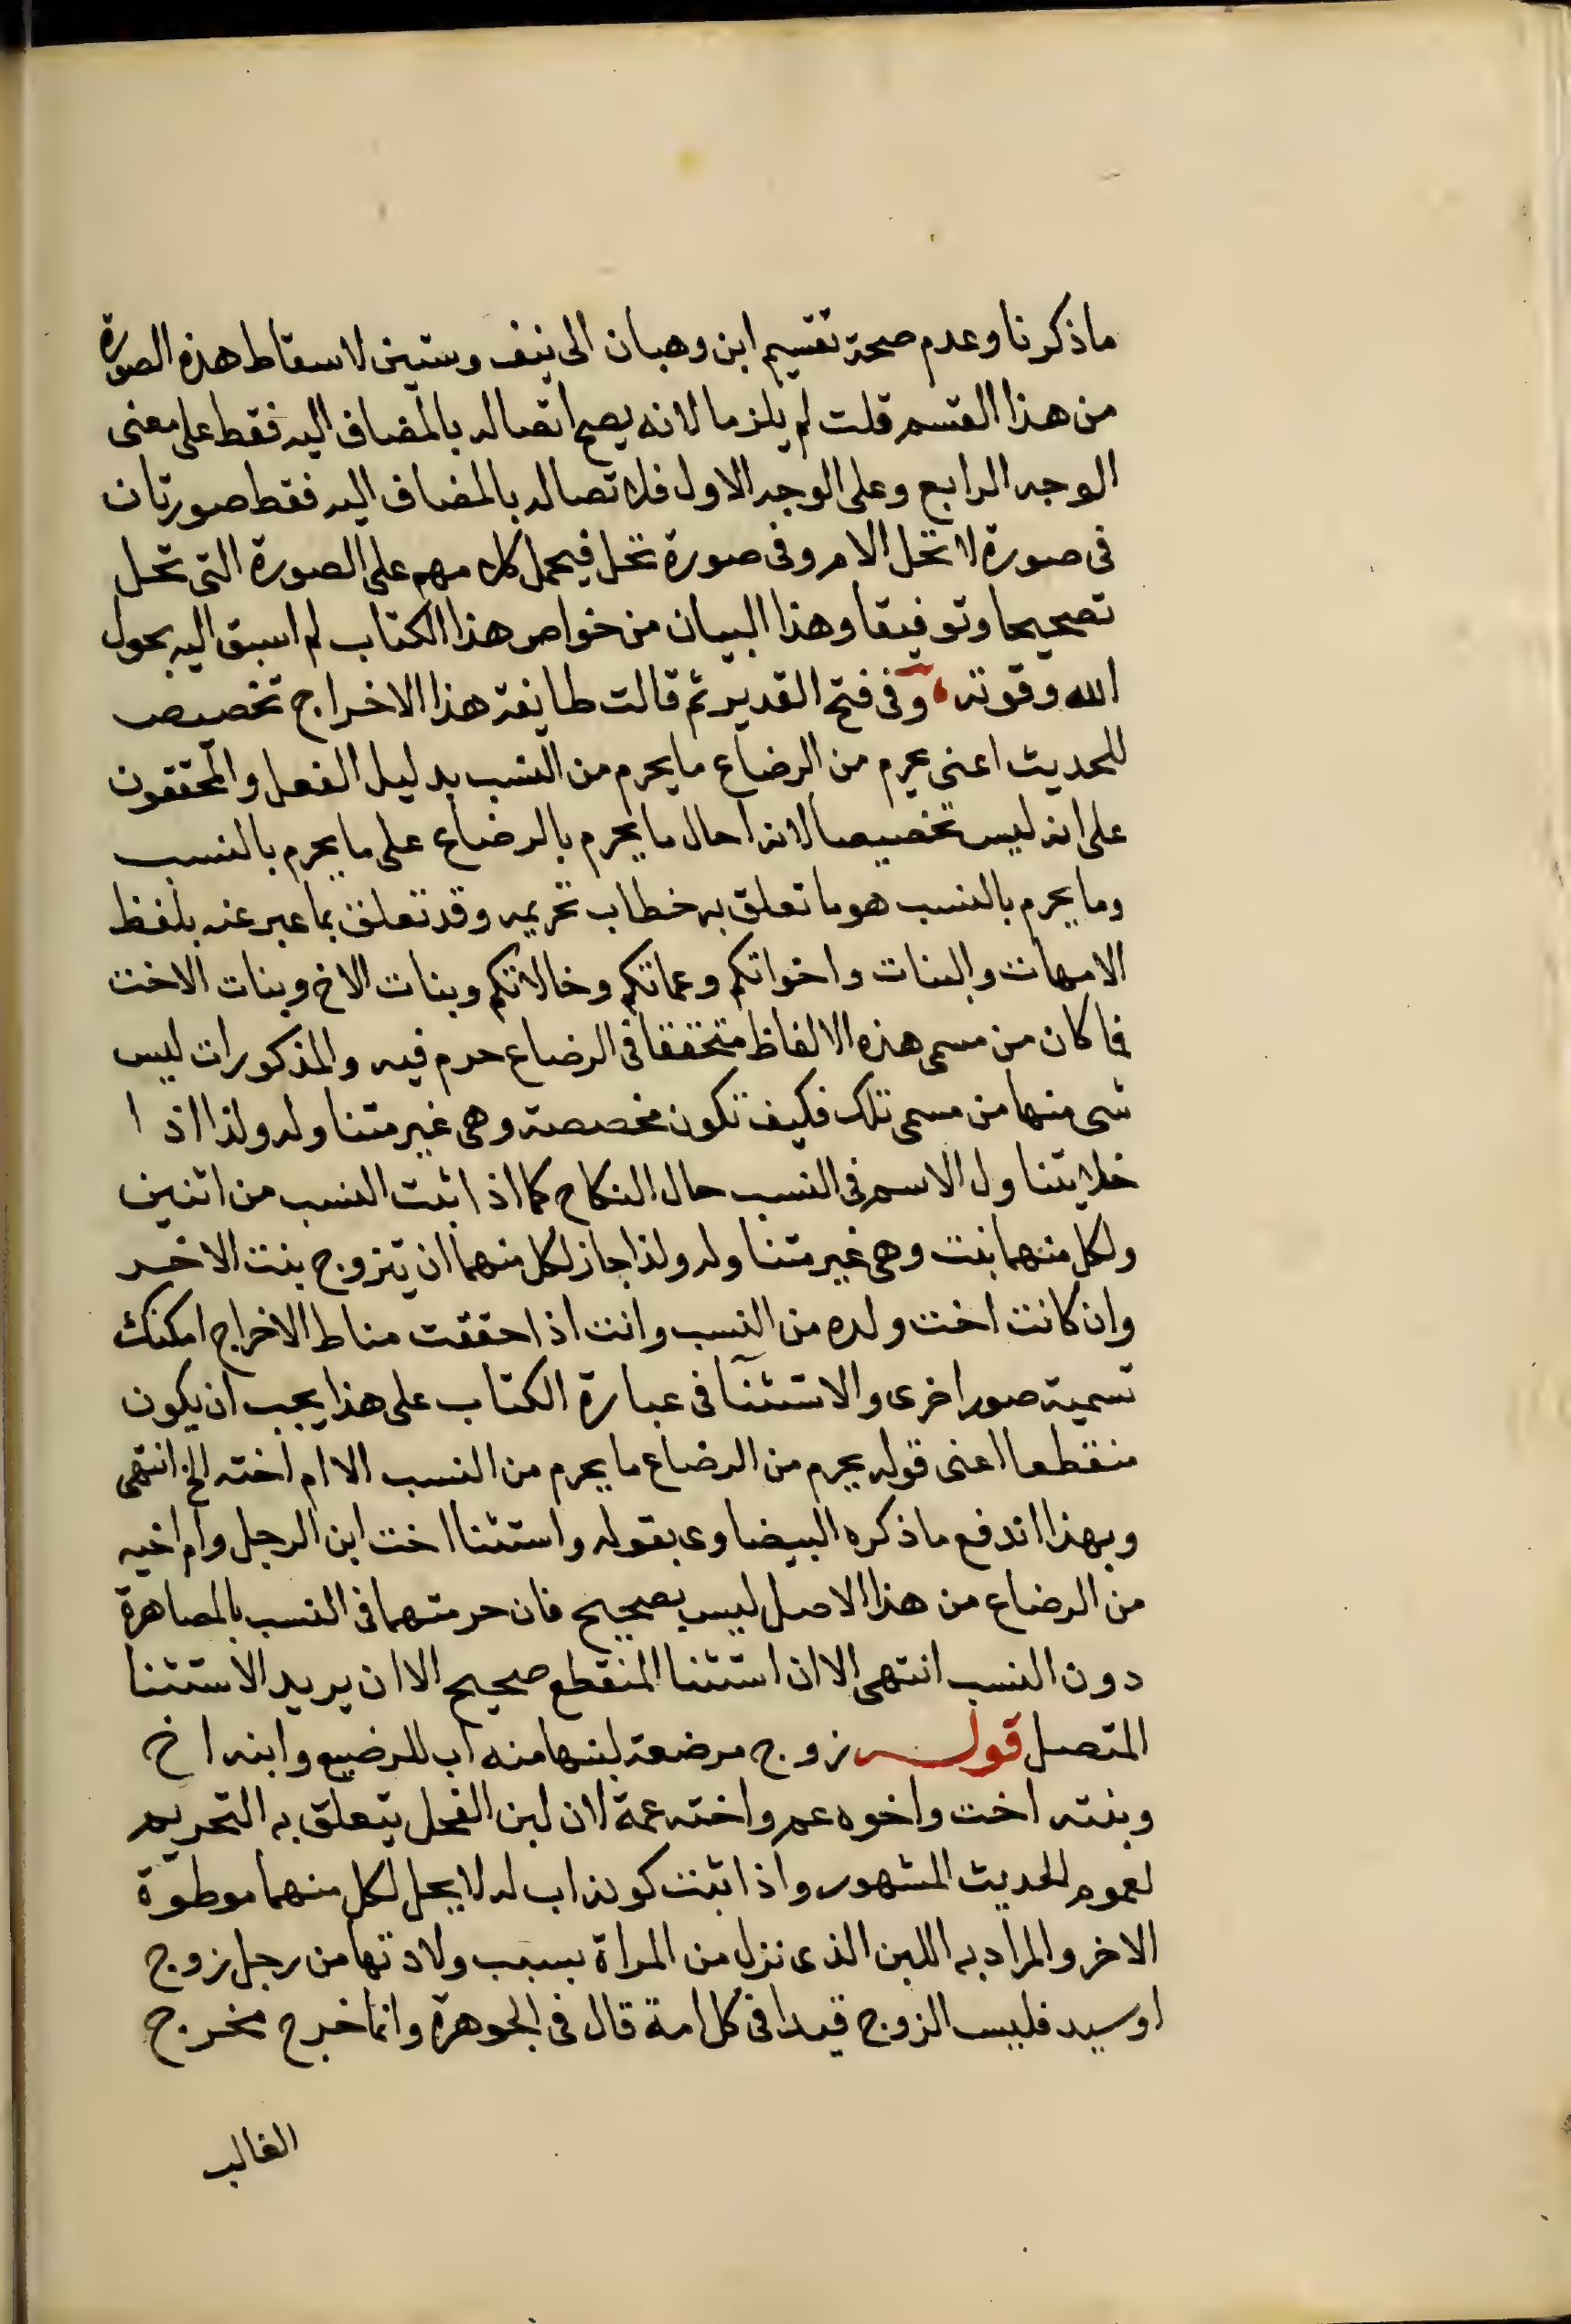 ماذكرنا وعدم صحة تقسيم ابن وهبان الى نيف وستين لاسقاط هذه الصورة
من هذا القسم قلت لم يلزما لانه يصح اتصاله بالمضاف اليه فقط على معنى
الوجه الرابع وعلى الوجه الاول فلاتصاله بالمضاف اليه فقط صورتان
فى صورة لا تحل الام وفى صورة تحل فيحمل كلامهم على الصورة التى تحل
تصحيحا وتوفيقا وهذا البيان من خواص هذا الكتاب لم اسبق اليه بحول
الله وقوته، وفى فتح القدير ثم قالت طايفة هذا الاخراج تخصيص
للحديث اعنى يحرم من الرضاع ما يحرم من النسب بدليل الفعل والمحققون
على انه ليس تخصيصا لانه احال ما يحرم بالرضاع على ما يحرم بالنسب
وما يحرم بالنسب هو ما تعلق به خطاب تحريمه وقد تعلق بما عبر عنه بلفظ
الامهات والبنات واخواتكم وعماتكم وخالاتكم وبنات الاخ وبنات الاخت
فما كان من مسمى هذه الالفاظ متحققا فى الرضاع حرم فيه والمذكورات ليس
شى منها من مسمى تلك فكيف تكون مخصصة وهى غير متناوله ولذا اذا
خلا يتناول الاسم فى النسب حال النكاح كما اذا ثبت النسب من اثنين
ولكل منهما بنت وهى غير متناوله ولذا جاز لكل منهما ان يتزوج بنت الاخر
وان كانت اخت ولده من النسب وانت اذا حققت مناط الاخراج امكنك
تسمية صور اخرى والاستثنآ فى عبارة الكتاب على هذا يجب ان يكون
منقطعا اعنى قوله يحرم من الرضاع ما يحرم من النسب الا ام اخته الخ انتهى
وبهذا اندفع ما ذكره البيضاوى بقوله واستثنا اخت ابن الرجل وام اخيه
من الرضاع من هذا الاصل ليس بصحيح فان حرمتهما فى النسب بالمصاهرة
دون النسب انتهى الا ان استثنا المنقطع صحيح الا ان يريد الاستثنا
المتصل قوله زوج مرضعة لبنها منه اب للرضيع وابنه اخ
وبنته اخت واخوه عم واخته عمة لان لبن الفحل يتعلق به التحريم
لعموم الحديث المشهور واذا ثبت كونه اب له لا يحل لكل منهما موطوة
الاخر والمراد به اللبن الذى نزل من المراة بسبب ولادتها من رجل زوج
او سيد فليس الزوج قيدا فى كلامه قال فى الجوهرة وانما خرج مخرج
الغالب